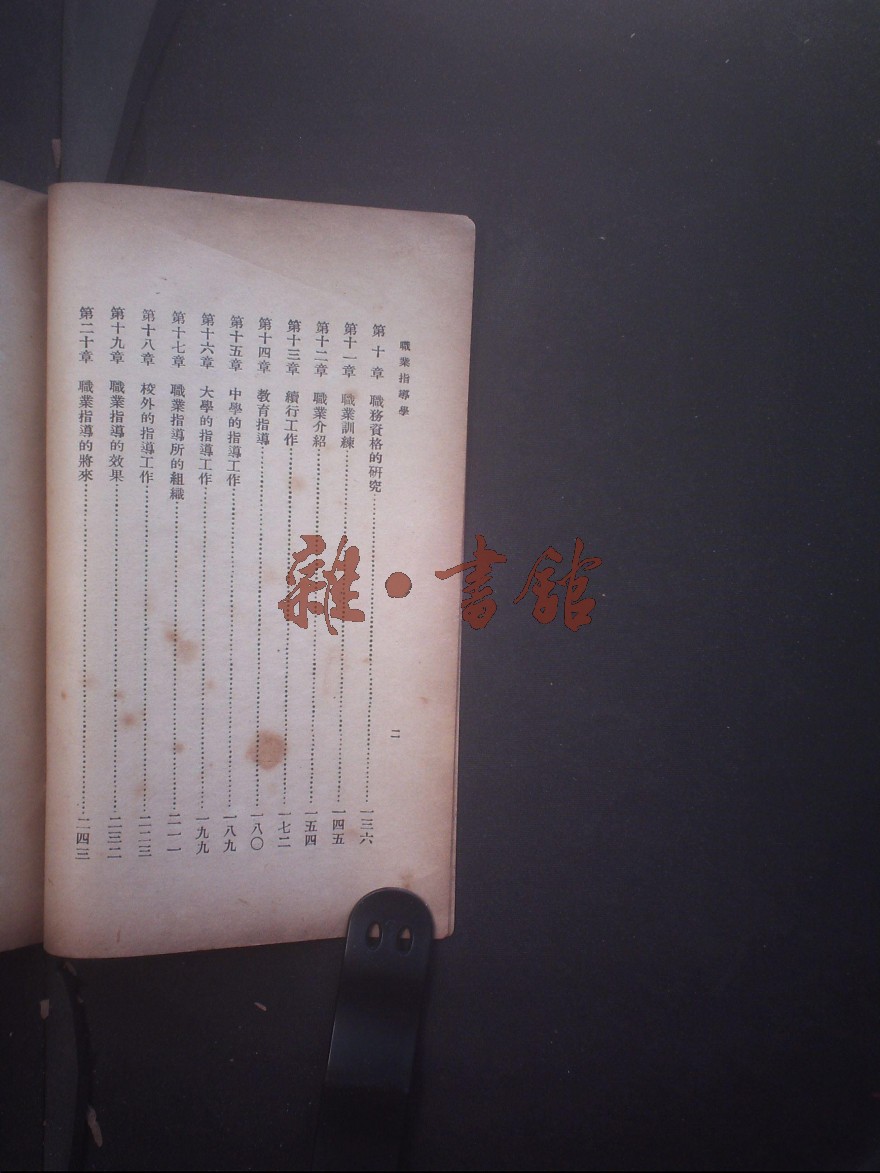 職業指導學
二
第十章 職務資格的研究……一三六
第十一章 職業訓練……一四五
第十二章 職業介紹……一五四
第十三章 續行工作……一七二
第十四章 教育指導……一八〇
第十五章 中學的指導工作……一八九
第十六章 大學的指導工作……一九九
第十七章 職業指導所的組織……二一一
第十八章 校外的指導工作……二二三
第十九章 職業指導的效果……二三二
第二十章 職業指導的將來……二四三
雜·書館